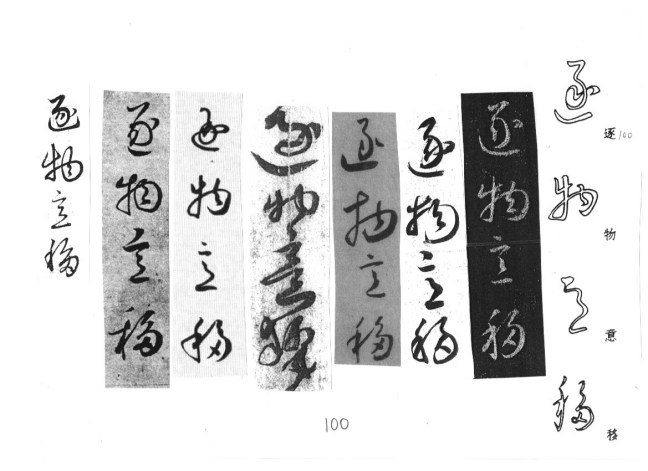 逐 100
物
意
移
逐物意移
逐物意移
逐物意移
逐物意移
逐物意移
逐物意移
逐物意移
逐物意移
100